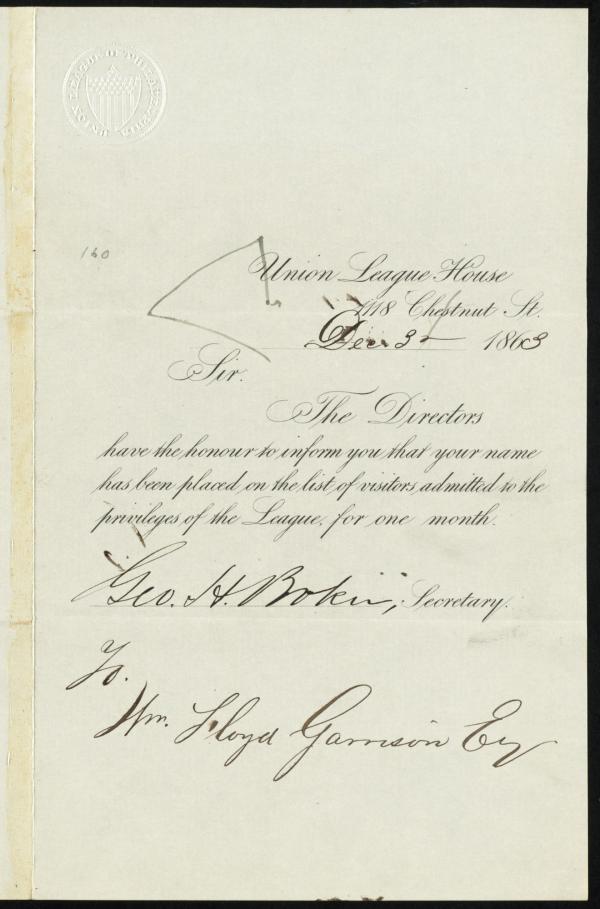 UNION LEAGUE OF PHILADELPHIA
160
Union League House
1118 Chestnut St.
Dec 3 1863
Sir.
The Directors
have the honour to inform you that your name
has been placed on the list of visitors admitted to the
privileges of the League, for one month.
Geo. H. Boker, Secretary.
To.
Wm. Lloyd Garrison Esq